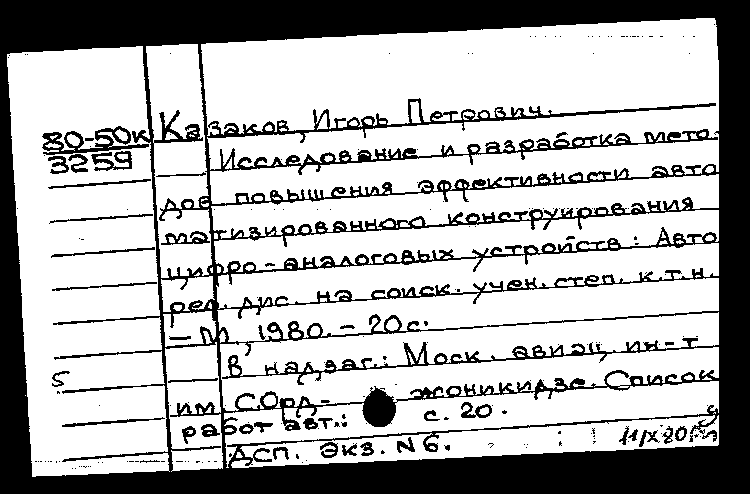 80-50к Казаков, Игорь Петрович.
3259 Исследование и разработка мето-
дов повышения эффективности авто
матизированного конструирования
цифро-аналоговых устройств: Авто
реф. дис. на соиск. учен. степ. к.т.н.
– М, 1980. – 20 с.
В надзаг.: Моск. авиац. ин-т
5
им С.Орд- жоникидзе. Список
работ авт.: с. 20.
ДСП. Экз. N 6.